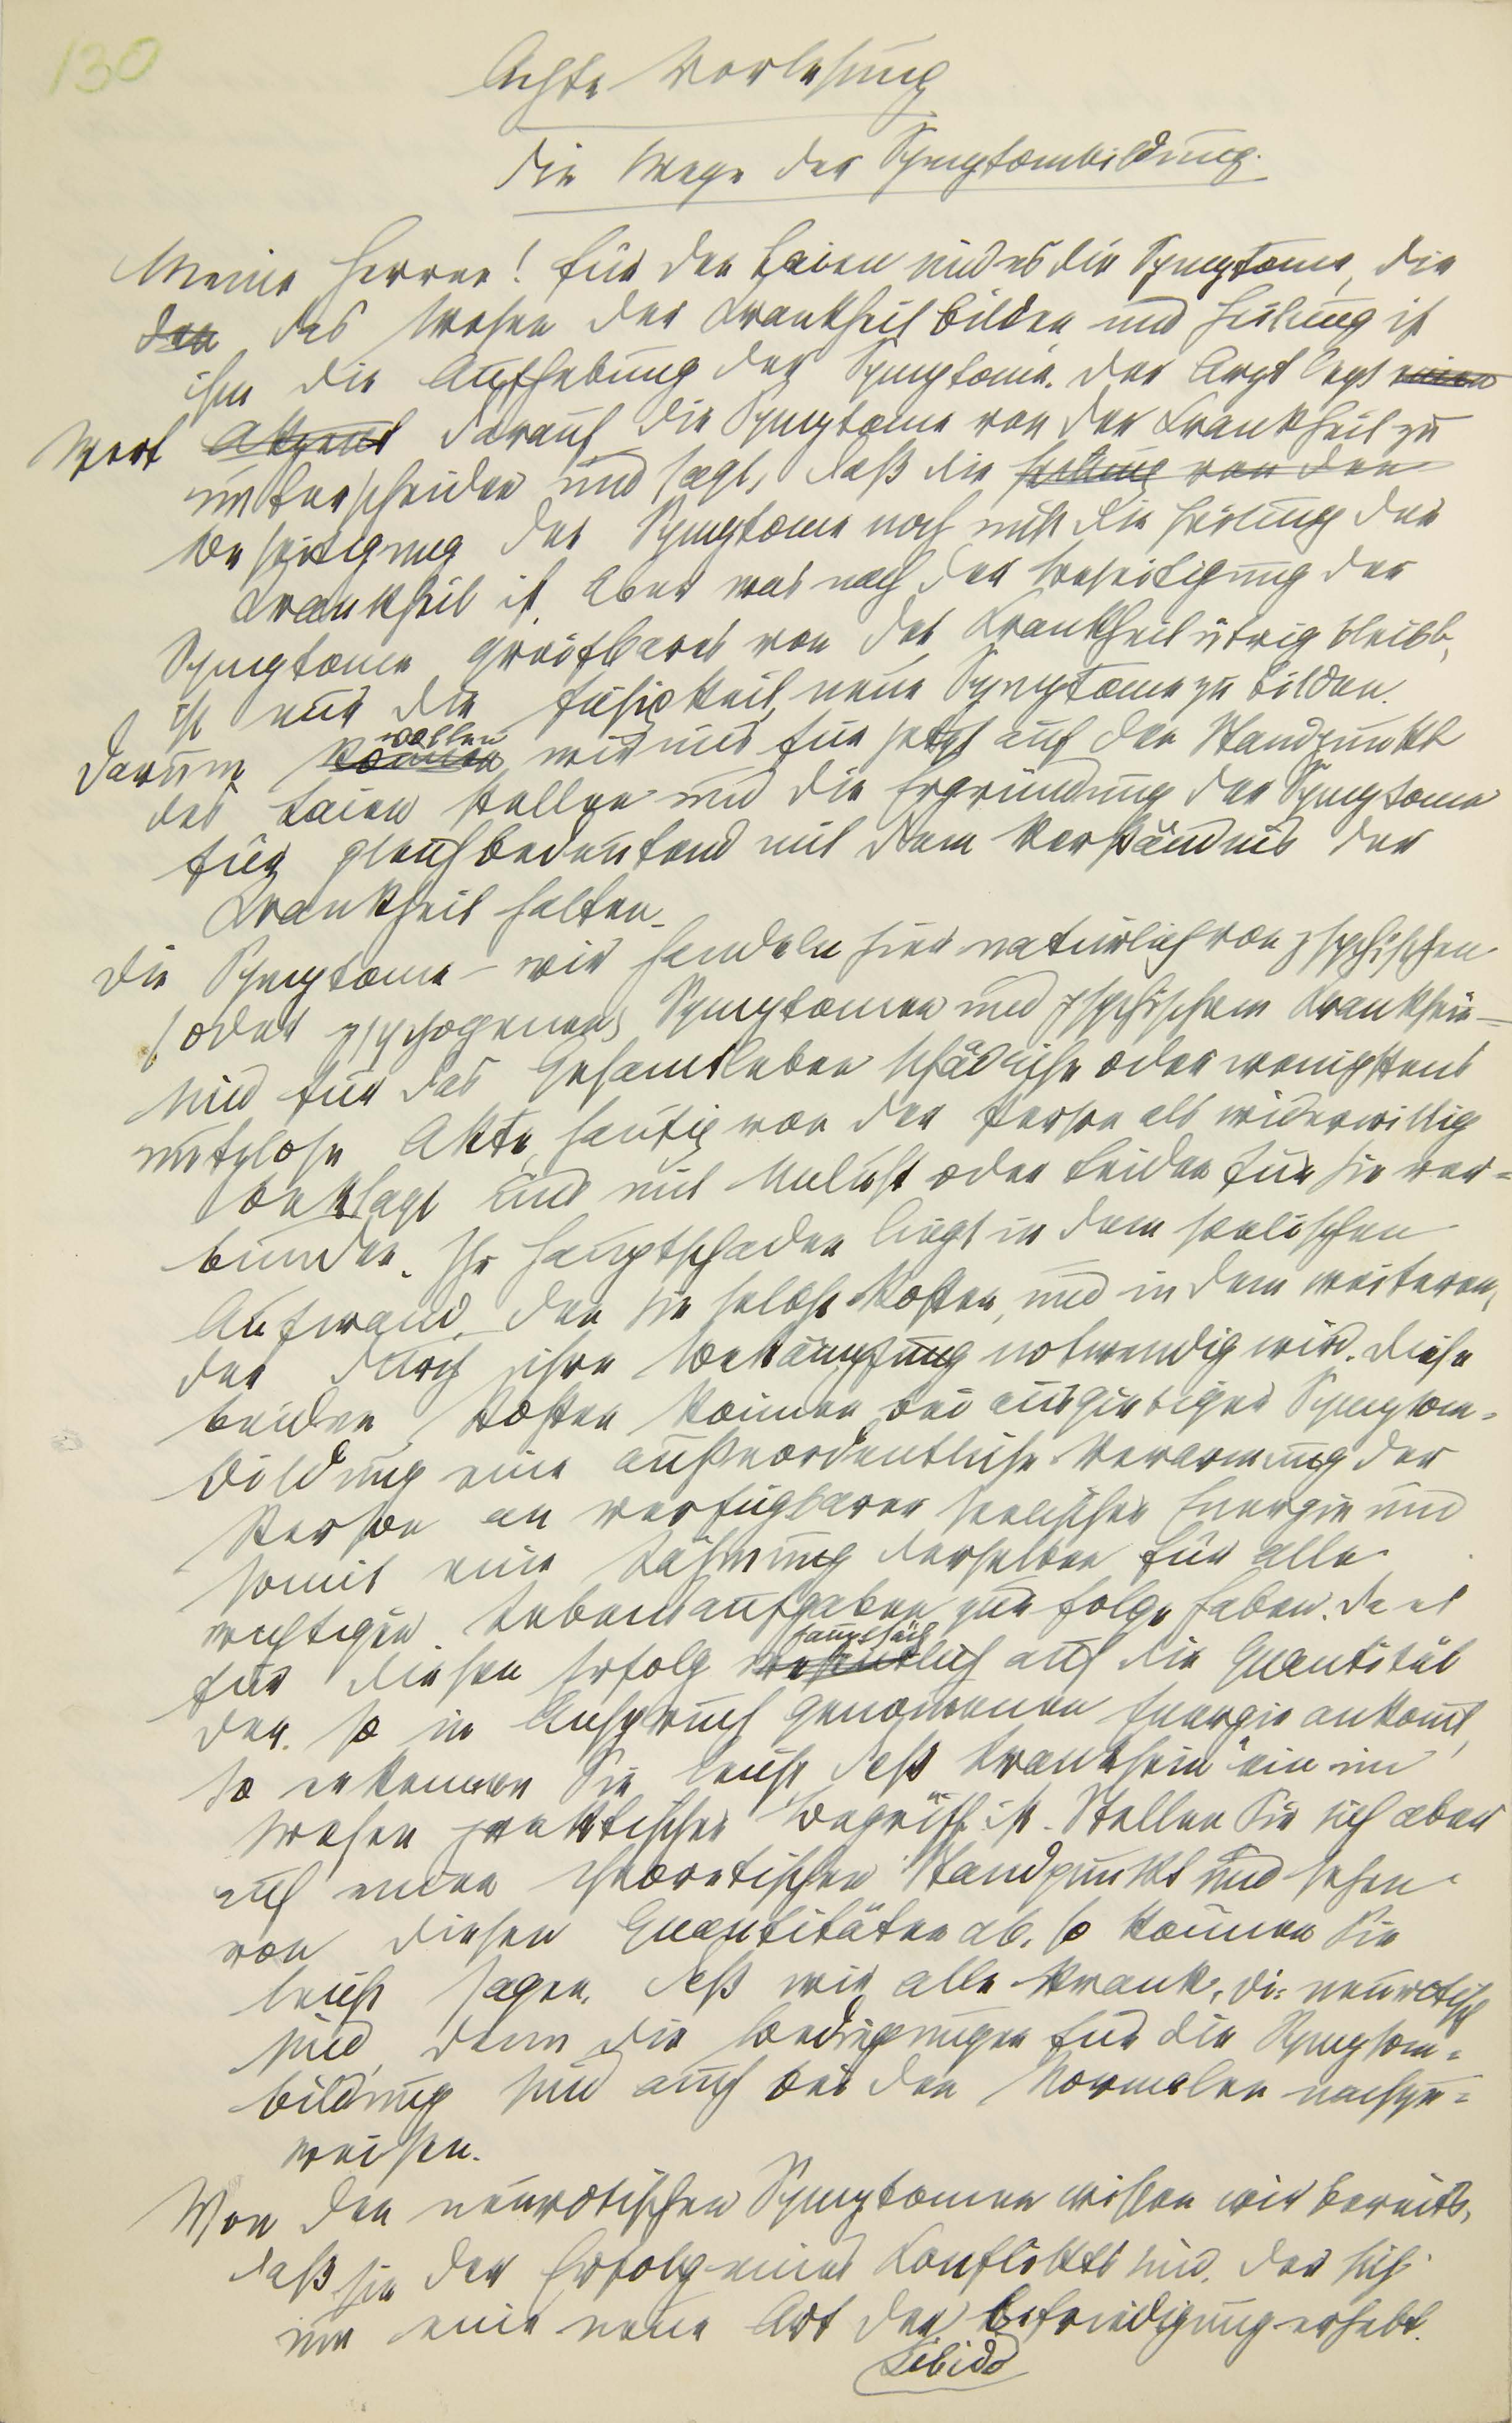 130
Achte Vorlesung
Die Wege der Symptombildung.
Meine Herren! Für den Laien sind es die Symptome, die
den das Wesen der Krankheit bilden und Heilung ist
ihm die Aufhebung der Symptome. Der Arzt legt einen
Wert Akzent darauf die Symptome von der Krankheit zu
unterscheiden und sagt, daß die Heilung von den
Beseitigung der Symptome noch nicht die Heilung der
Krankheit ist. Aber was nach der Beseitigung der
Symptome greifbares von der Krankheit übrig bleibt,
ist nur die Fähigkeit, neue Symptome zu bilden.
Darum können wollen wir uns für jetzt auf den Standpunkt
des Laien stellen und die Ergründung der Symptome
für gleichbedeutend mit dem Verständnis der
Krankheit halten.
Die Symptome – wir handeln hier natürlich von psychischen
(oder psychogenen) Symptomen und psychischem Kranksein –
sind für das Gesamtleben schädliche oder wenigstens
nutzlose Akte, häufig von der Person als widerwillig
beklagt und mit Unlust oder Leiden für sie ver=
bunden. Ihr Hauptschaden liegt in dem seelischen
Aufwand, den sie selbst kosten, und in dem weiteren,
der durch ihre Bekämpfung notwendig wird. Diese
beiden Kosten können bei ausgiebiger Symptom=
bildung eine außerordentliche Verarmung der
Person an verfügbarer seelischer Energie und
somit eine Lähmung derselben für alle
wichtigen Lebensaufgaben zur Folge haben. Da es
für diesen Erfolg wesentlich hauptsäch auf die Quantität
der so in Anspruch genommenen Energie ankomt,
so erkennen Sie leicht, daß „Kranksein“ ein im
Wesen praktischer Begriff ist. Stellen Sie sich aber
auf einen theoretischen Standpunkt und sehen
von diesen Quantitäten ab, so können Sie
leicht sagen, daß wir alle krank, di: neurotisch
sind, denn die Bedingungen für die Symptom=
bildung sind auch bei den Normalen nachzu=
weisen.
Von den neurotischen Symptomen wissen wir bereits,
daß sie der Erfolg eines Konflikts sind, der sich
um eine neue Art der Befriedigung erhebt.
Libido